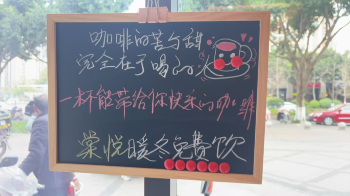 咖啡的苦与甜
完全在于喝的
一杯能带给你快乐的咖啡
棠悦暖冬免费饮